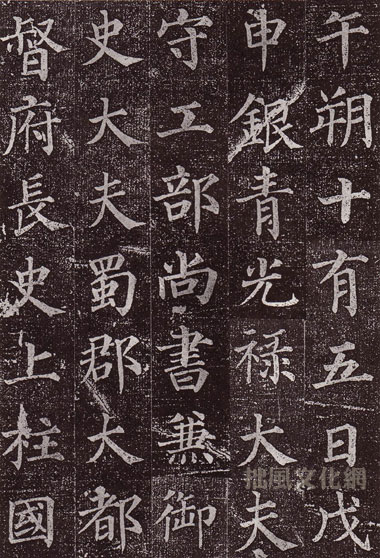 午朔十有五日戊
申銀青光祿大夫
守工部尚書兼御
史大夫蜀郡大都
督府長史上柱國
拙風文化網